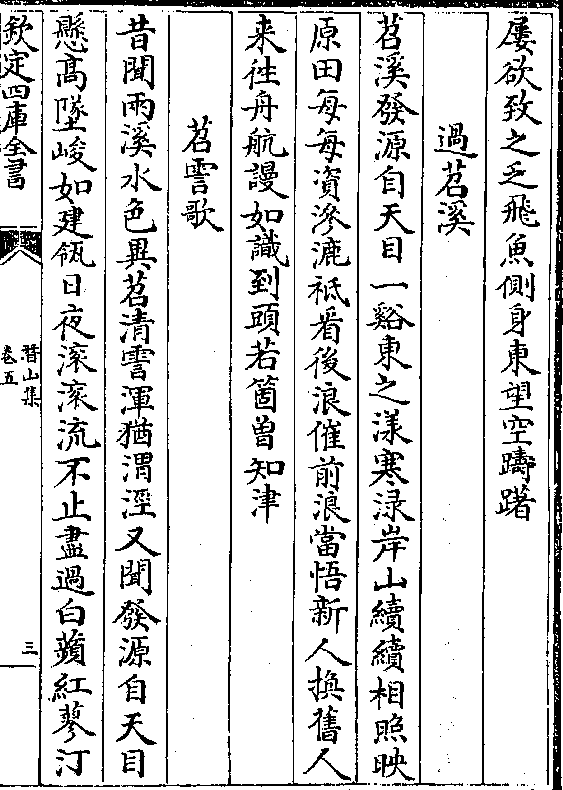 屢欲致之乏飛魚側身東望空躊躇
過苕溪
苕溪發源自天目一谿東之漾寒渌岸山續續相照映
原田每每資滲漉祗看後浪催前浪當悟新人換舊人
来徃舟航謾如識到頭若箇曽知津
苕霅歌
昔聞兩溪水色異苕清霅渾猶渭涇又聞發源自天目
懸髙墜峻如建瓴日夜滚滚流不止盡過白蘋紅蓼汀
欽定四庫全書
潛山集
卷五
三